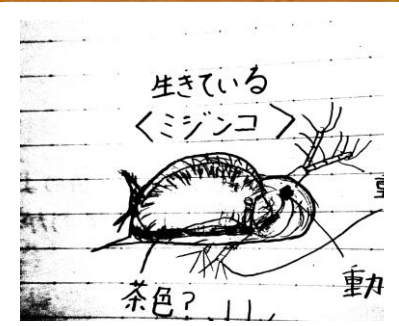 生きている
<ミジンコ>
動
茶色?